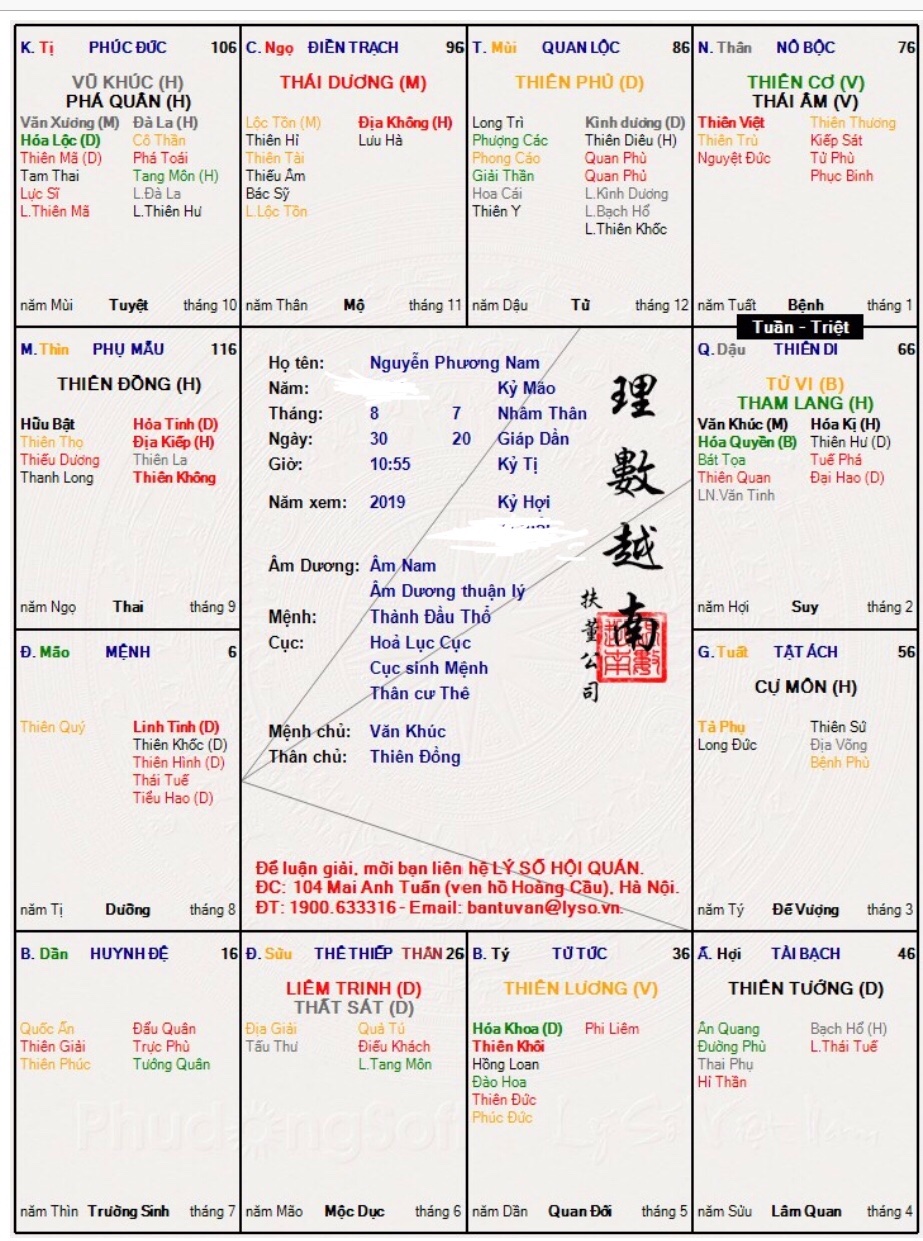 K. Tị PHÚC ĐỨC 106
VŨ KHÚC (H)
PHÁ QUÂN (H)
Văn Xương (M) Đà La (H)
Hóa Lộc (D) Cô Thần
Thiên Mã (D) Phá Toái
Tam Thai Tang Môn (H)
Lực Sĩ L.Đà La
L.Thiên Mã L.Thiên Hư
năm Mùi Tuyệt tháng 10
C. Ngọ ĐIỀN TRẠCH 96
THÁI DƯƠNG (M)
Lộc Tồn (M) Địa Không (H)
Thiên Hỉ Lưu Hà
Thiên Tài
Thiếu Âm
Bác Sỹ
L.Lộc Tồn
năm Thân Mộ tháng 11
T. Mùi QUAN LỘC 86
THIÊN PHỦ (D)
Long Trì Kình dương (D)
Phượng Các Thiên Diêu (H)
Phong Cáo Quan Phù
Giải Thần Quan Phủ
Hoa Cái L.Kình Dương
Thiên Y L.Bạch Hổ
L.Thiên Khốc
năm Dậu Tử tháng 12
N. Thân NÔ BỘC 76
THIÊN CƠ (V)
THÁI ÂM (V)
Thiên Việt Thiên Thương
Thiên Trù Kiếp Sát
Nguyệt Đức Tử Phù
Phục Binh
năm Tuất Bệnh tháng 1
Tuần - Triệt
M.Thìn PHỤ MẪU 116
THIÊN ĐỒNG (H)
Hữu Bật Hỏa Tinh (D)
Thiên Thọ Địa Kiếp (H)
Thiếu Dương Thiên La
Thanh Long Thiên Không
năm Ngọ Thai tháng 9
Họ tên: Nguyễn Phương Nam
Năm: Kỷ Mão
Tháng: 8 7 Nhâm Thân
Ngày: 30 20 Giáp Dần
Giờ: 10:55 Kỷ Tị
Năm xem: 2019 Kỷ Hợi
Âm Dương: Âm Nam
Âm Dương thuận lý
Mệnh: Thành Đầu Thổ
Cục: Hoả Lục Cục
Cục sinh Mệnh
Thân cư Thê
Mệnh chủ: Văn Khúc
Thân chủ: Thiên Đồng
理數越南
扶董公司
Để luận giải, mời bạn liên hệ LÝ SỐ HỘI QUÁN.
ĐC: 104 Mai Anh Tuấn (ven hồ Hoàng Cầu), Hà Nội.
ĐT: 1900.633316 - Email: bantuvan@lyso.vn.
Q. Dậu THIÊN DI 66
TỬ VI (B)
THAM LANG (H)
Văn Khúc (M) Hóa Kị (H)
Hóa Quyền (B) Thiên Hư (D)
Bát Tọa Tuế Phá
Thiên Quan Đại Hao (D)
LN.Văn Tinh
năm Hợi Suy tháng 2
Đ. Mão MỆNH 6
Thiên Quý Linh Tinh (D)
Thiên Khốc (D)
Thiên Hình (D)
Thái Tuế
Tiểu Hao (D)
năm Tị Dưỡng tháng 8
G.Tuất TẬT ÁCH 56
CỰ MÔN (H)
Tả Phụ Thiên Sứ
Long Đức Địa Võng
Bệnh Phù
năm Tý Đế Vượng tháng 3
B. Dần HUYNH ĐỆ 16
Quốc Ấn Đẩu Quân
Thiên Giải Trực Phù
Thiên Phúc Tướng Quân
năm Thìn Trường Sinh tháng 7
Đ. Sửu THÊ THIẾP THÂN 26
LIÊM TRINH (D)
THẤT SÁT (D)
Địa Giải Quả Tú
Tấu Thư Điếu Khách
L.Tang Môn
năm Mão Mộc Dục tháng 6
B. Tý TỬ TỨC 36
THIÊN LƯƠNG (V)
Hóa Khoa (D) Phi Liêm
Thiên Khôi
Hồng Loan
Đào Hoa
Thiên Đức
Phúc Đức
năm Dần Quan Đới tháng 5
Ấ. Hợi TÀI BẠCH 46
THIÊN TƯỚNG (D)
Ân Quang Bạch Hổ (H)
Đường Phù L.Thái Tuế
Thai Phụ
Hỉ Thần
năm Sửu Lâm Quan tháng 4
PhudongSoft Lý Số Việt Nam